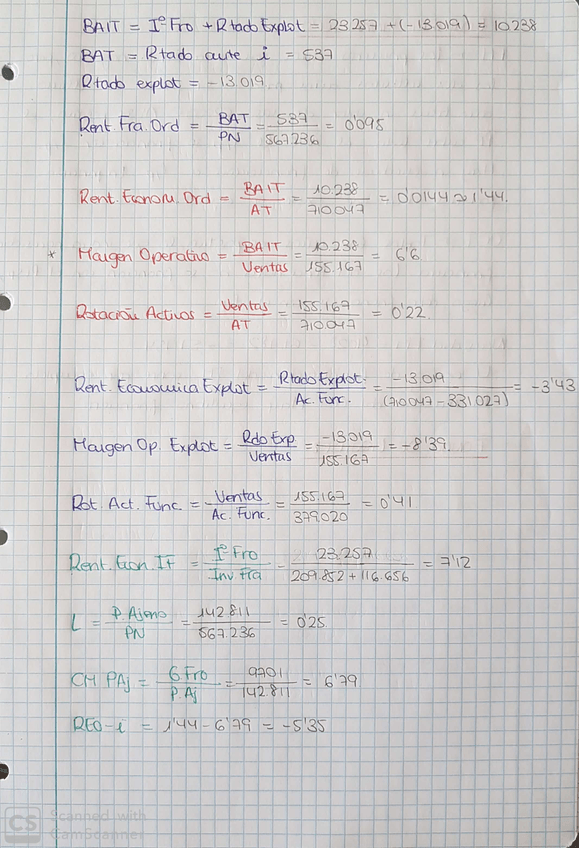 BAIT = Iº Fro + Rtado Explot = 23.257 + (-13.019) = 10.238
BAT = Rtado ante i = 537
Rtado explot = -13.019
Rent. Fra. Ord = BAT / PN = 537 / 567.236 = 0'095
Rent. Econom. Ord = BAIT / AT = 10.238 / 710.047 = 0'0144 ≈ 1'44.
* Margen Operativo = BAIT / Ventas = 10.238 / 155.167 = 6'6
Rotación Activos = Ventas / AT = 155.167 / 710.047 = 0'22
Rent. Economica Explot = Rtado Explot. / Ac. Func. = -13.019 / (710.047 - 331.027) = -3'43
Margen Op. Explot = Rdo Exp / Ventas = -13019 / 155.167 = -8'39.
Rot. Act. Func. = Ventas / Ac. Func. = 155.167 / 379.020 = 0'41
Rent. Econ. IF = Iº Fro / Inv Fra = 23.257 / 209.852 + 116.656 = 7'12
L = P. Ajeno / PN = 142.811 / 567.236 = 0'25
CM PAj = G Fro / P. Aj = 9701 / 142.811 = 6'79
REO-i = 1'44 - 6'79 = -5'35
CS Scanned with
CamScanner